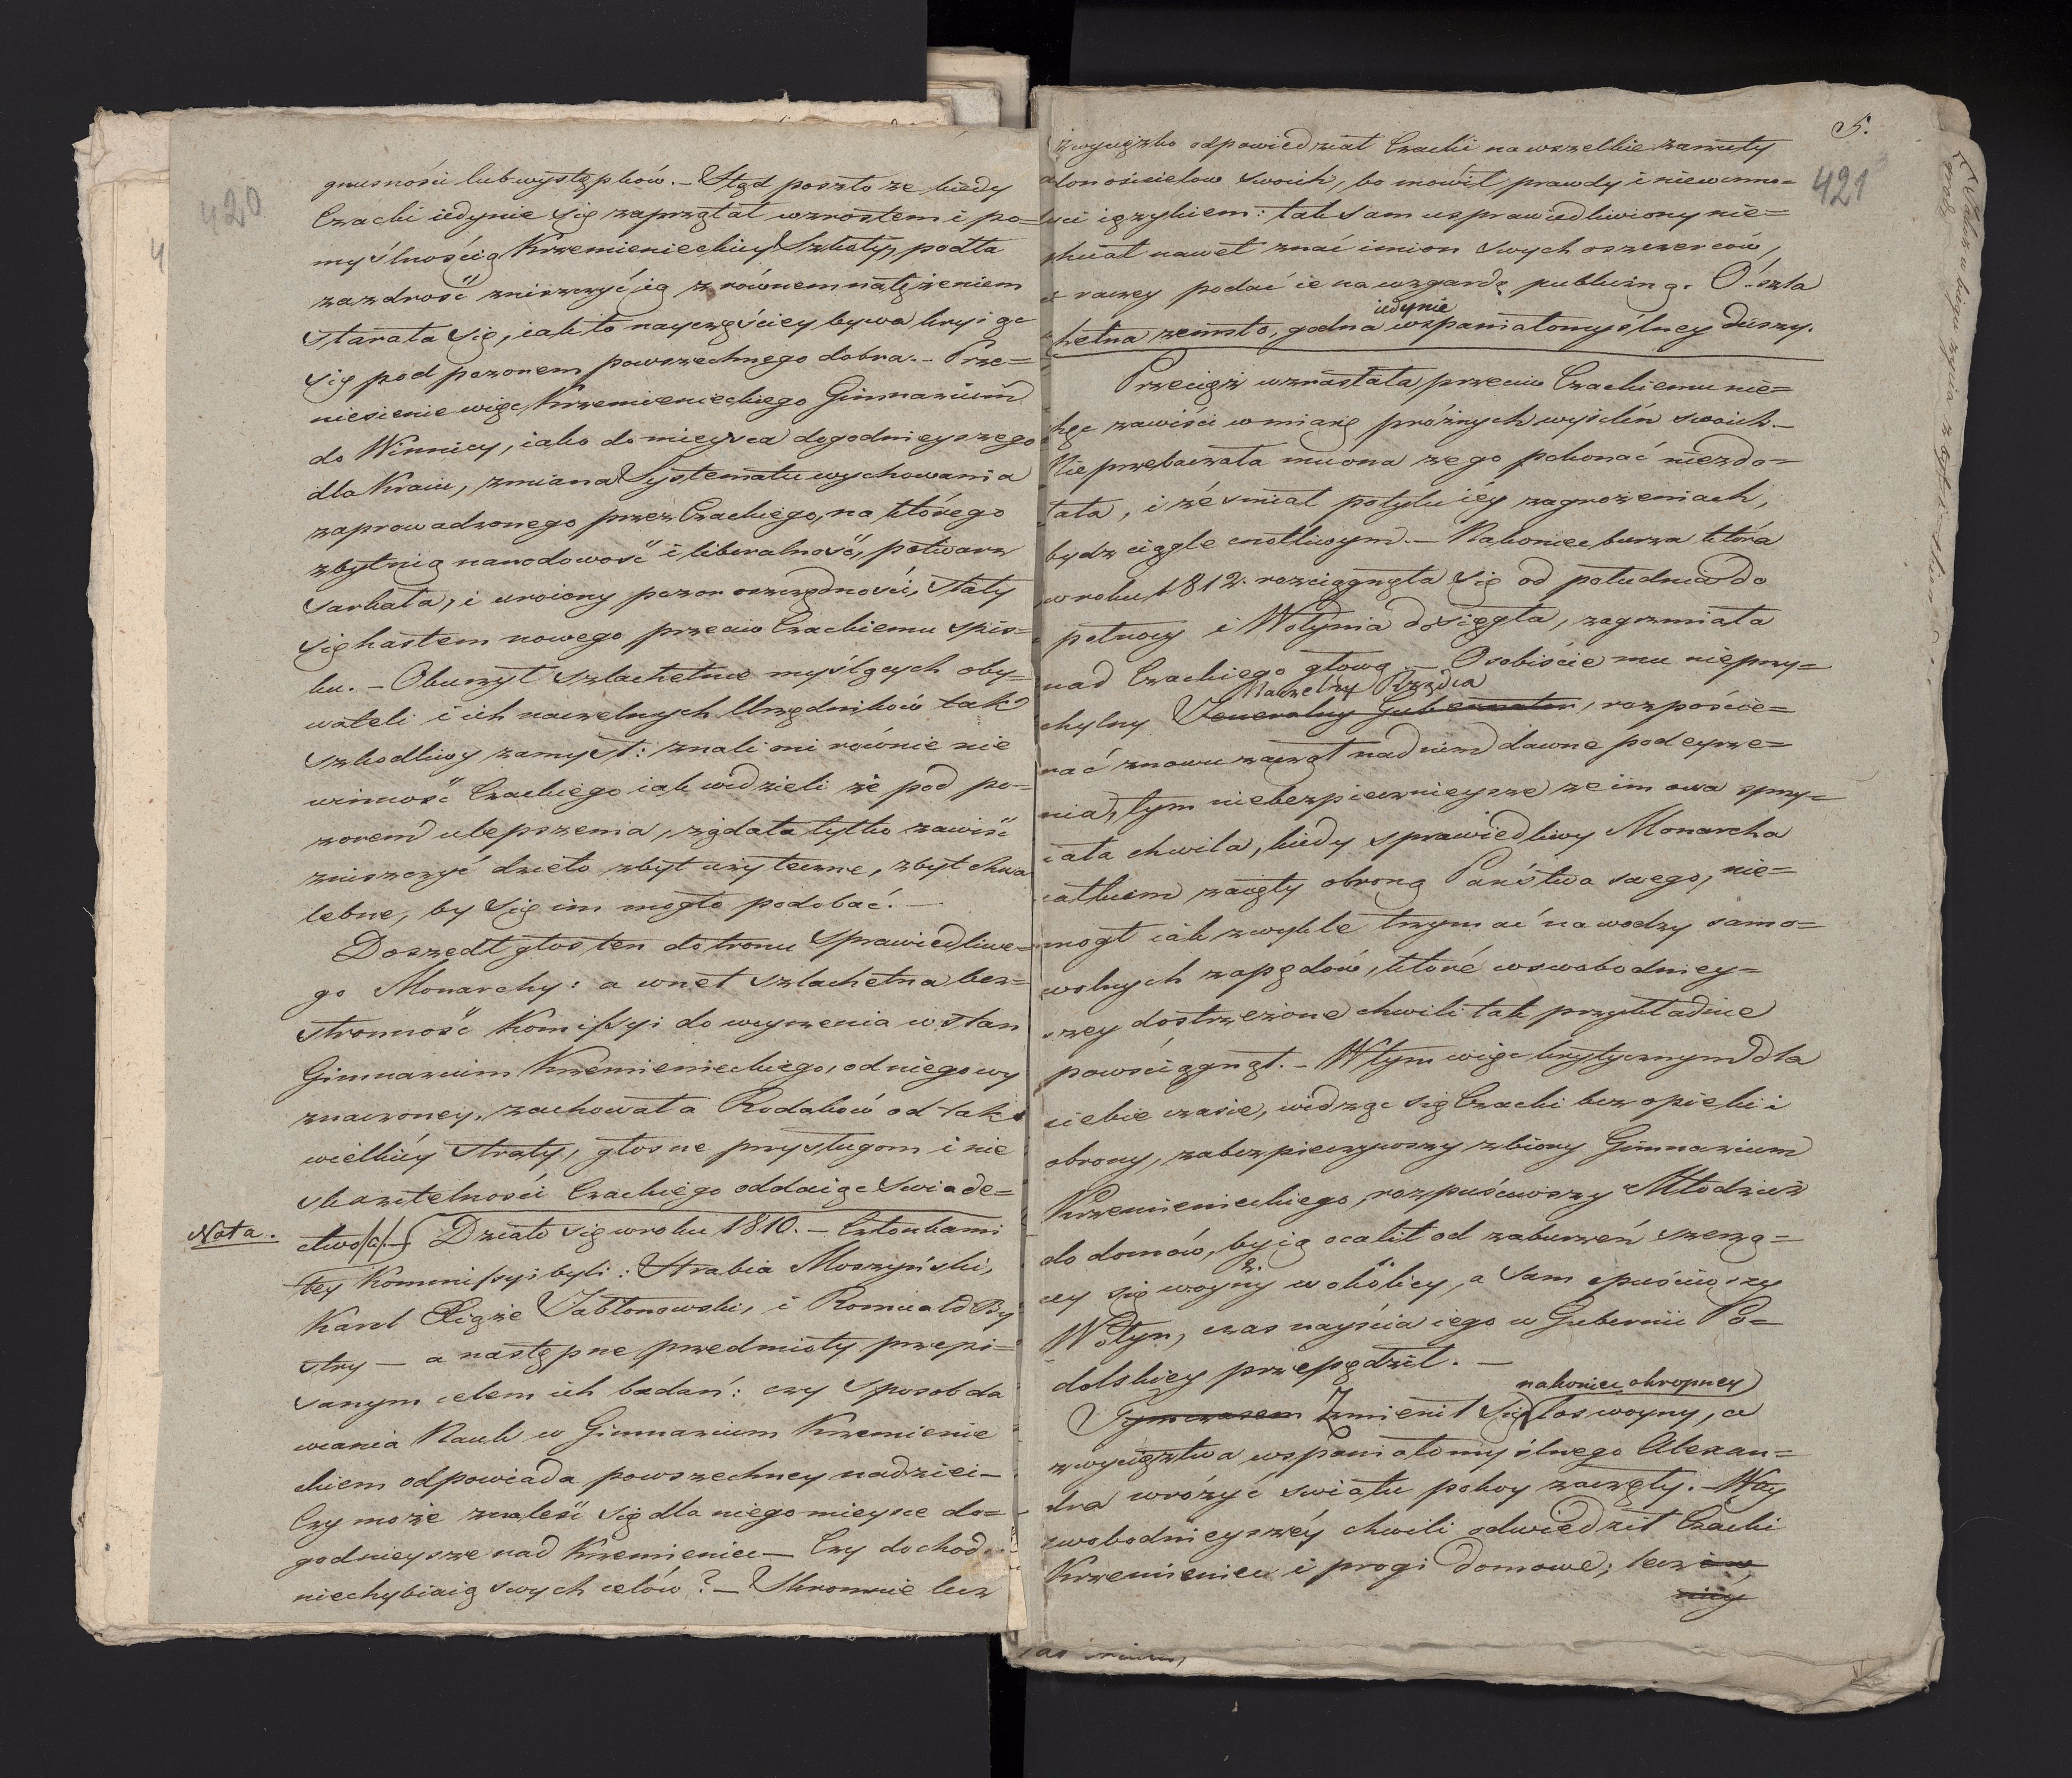 420
gnusności lub występków. – Stąd poszło ze kiedy
Czacki iedynie się zaprzątał wzrostem i po=
myślnością Krzemienieckiey Szkoły, podła
zazdrość zniszczyć ią z równem natężeniem
starała się, iak to nayczęściey bywa kryiąc
się pod pozorem powszechnego dobra. – Prze=
niesienie więc Krzemienieckiego Gimnazium
do Winnicy, iako do mieysca dogodnieyszego
dla Kraiu, zmiana Systematu wychowania
zaprowadzonego przez Czackiego, na którego
zbytnią narodowość i liberalność, potwarz
sarkała, i uroiony pozor oszczędności, stały
się hasłem nowego przeciw Czackiemu spis=
ku. – Oburzył szlachetnie myślących oby=
wateli i ich naczelnych Urzędników tak
szkodliwy zamysł: znali oni równie nie
winność Czackiego iak widzieli że pod po=
zorem ulepszenia, żądała tylko zawiść
zniszczyć dzieło zbyt użyteczne, zbyt chwa
lebne, by się im mogło podobać. –
Doszedł głos ten do tronu Sprawiedliwe=
go Monarchy: a wnet szlachetna bez=
stronność Komissyi do weyrzenia w stan
Gimnazium Krzemienieckiego, od niego wy
znaczoney, zachowała Rodaków od tak
wielkiéy straty, głosne przysługom i nie
skazitelności Czackiego oddaiąc swiade=
Nota.
ctwo (a). – Działo się w roku 1810. – Członkami
tey Kommissyi byli: Hrabia Moszyński,
Karol Xiąże Jabłonowski, i Romuald By
stry – a następne przedmioty przepi=
sanym celem ich badań: czy sposob da
wania Nauk w Gimnazium Krzemienie
ckiem odpowiada powszechney nadziei –
Czy może znaleść się dla niego mieysce do=
godnieysze nad Krzemieniec – Czy dochod
niechybiaią swych celów? – Skromnie lecz
5.
421
zwycięzko odpowiedział Czacki na wszelkie zarzuty
donosicielow swoich, bo mówił prawdy i niewinno=
ści ięzykiem: tak sam usprawiedliwiony nie=
chciał nawet znać imion swych oszczerców,
raczey podać ie na wzgardę publiczną. O! szla
iedynie
chetna zemsto, godna wspaniałomyślney duszy.
Przeciąż wzrastała przeciw Czackiemu nie=
chęc zawiści w miarę próżnych wysileń swoich. –
Nie przebaczała mu ona ze go pokonać niezdo=
łała, i że smiał po tylu iéy zagrożeniach,
bydz ciągle cnotliwym. – Nakoniec burza która
w roku 1812. rozciągnęła się od południa do
pełnocy i Wołynia dosięgła, zagrzmiała
nad Czackiego głową. – Osobiście mu nieprzy=
Naczelny Rządca
chylny Jeneralny Gubernator, rozpoście=
rać znowu zaczął nad nim dawne podeyrze=
nia, tym niebezpiecznieysze ze im owa sprzy=
iała chwila, kiedy sprawiedliwy Monarcha
całkiem zaięty obroną Państwa swego, nie=
mogł iak zwykle trzymać na wodzy samo=
wolnych zapędów, które w swobodniey=
szey dostrzeżone chwili tak przykładnie
powsciągnął. – W tym więc krytycznym dla
siebie czasie, widząc się Czacki bez opieki i
obrony, zabezpieczywszy zbiory Gimnazium
Krzemienieckiego, rozpuściwszy Młodzież
do domów, by ią ocalił od zaburzeń szerzą=
cey się woyny w okolicy, a sam opuściwszy
Wołyn, czas nayścia iego w Gubernii Po=
dolskiey przepędził. –
nakoniec okropney
Tymczasem Zmienił się los woyny, a
zwycięztwa wspaniałomyślnego Alexan=
dra wróżyć swiatu pokoy zaczęły. – Way
swobodnieyszéy chwili odwiedził Czacki
Krzemieniec i progi domowe; lecz
niey